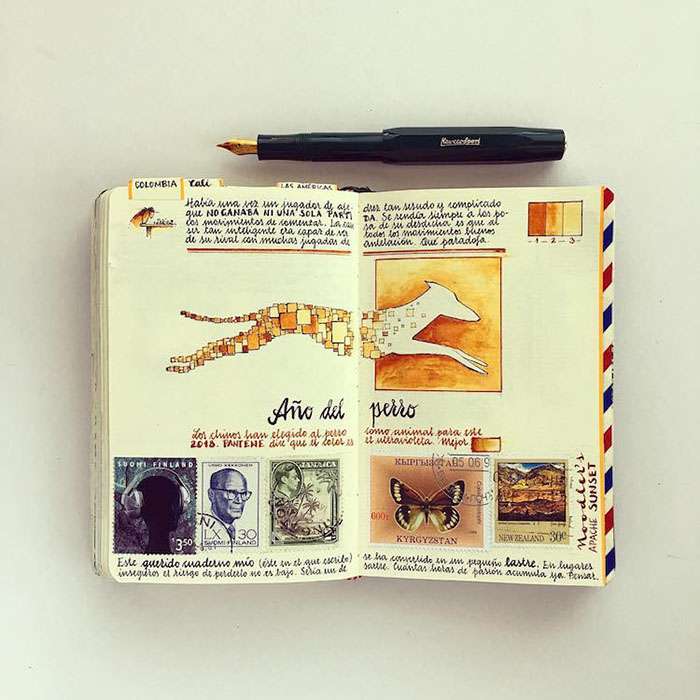 KawecoSport
COLOMBIA Cali
LAS AMÉRICAS
Había una vez un jugador de aje-
drez tan sesudo y complicado
que NO GANABA NI UNA SOLA PARTI
DA. Se rendía siempre a los po-
cos movimientos de comenzar. La cau
sa de su desdicha es que al
ser tan inteligente era capaz de ver
todos los movimientos buenos
de su rival con muchas jugadas de
antelación. Qué paradoja.
1 - 2 - 3
Año del perro
Los chinos han elegido al perro
como animal para este
2018. PANTENE dice que el color es
el ultravioleta. Mejor
SUOMI FINLAND
3,50
URHO KEKKONEN
30
SUOMI FINLAND
JAMAICA
КЫРГЫЗСТАН
05 06 9
600т
KYRGYZSTAN
NEW ZEALAND 30c
Noodler's
APACHE SUNSET
Este querido cuaderno mío (éste en el que escribo)
se ha convertido en un pequeño lastre. En lugares
inseguros el riesgo de perderlo no es bajo. Sería un de
sastre. Cuántas horas de pasión acumula ya. Pensar